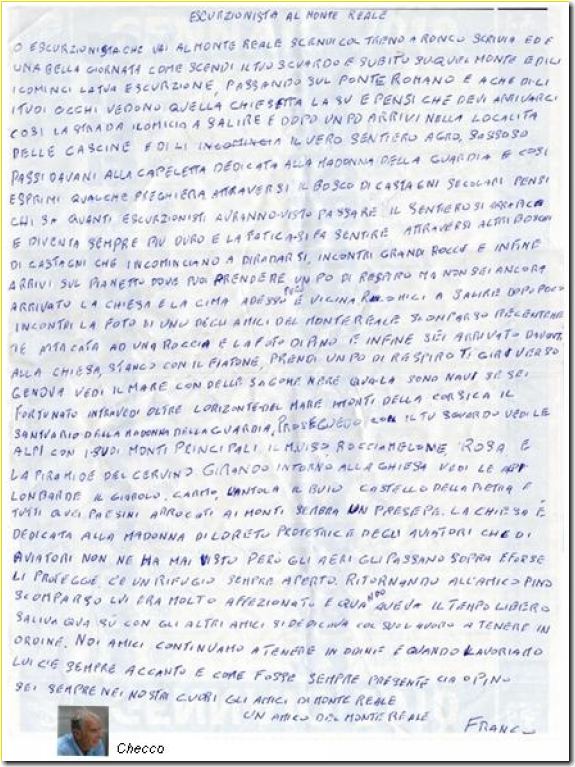 ESCURZIONISTA AL MONTE REALE
O ESCURZIONISTA CHE VAI AL MONTE REALE SCENDI COL TRENO A RONCO SCRIVIA ED E
UNA BELLA GIORNATA COME SCENDI IL TUO SGUARDO E SUBITO SU QUEL MONTE E DI LI
ICOMINCI LA TUA ESCURZIONE, PASSANDO SUL PONTE ROMANO E ACHE DI LI
I TUOI OCCHI VEDONO QUELLA CHIESETTA LA SU E PENSI CHE DEVI ARRIVARCI
COSI LA STRADA ICOMICIA A SALIRE E DOPO UN PO ARRIVI NELLA LOCALITA
DELLE CASCINE E DI LI INCOMINCIA IL VERO SENTIERO AGRO, SASSOSO
PASSI DAVANI ALLA CAPELETTA DEDICATA ALLA MADONNA DELLA GUARDIA E COSI
ESPRIMI QUALCHE PREGHIERA ATTRAVERSI IL BOSCO DI CASTAGNI SECOLARI PENSI
CHI SA QUANTI ESCURZIONISTI AVRANNO VISTO PASSARE IL SENTIERO SI ARRAMPICA
E DIVENTA SEMPRE PIU DURO E LA FATICA SI FA SENTIRE ATTRAVERSI ALTRI BOSCHI
DI CASTAGNI CHE INCOMINCIANO A DIRADARSI, INCONTRI GRANDI ROCCE E INFINE
ARRIVI SUL PIANETTO DOVE PUOI PRENDERE UN PO DI RESPIRO MA NON SEI ANCORA
ARRIVATO LA CHIESA E LA CIMA ADESSO È PIU VICINA RICOMICI A SALIRE DOPO POCO
INCONTRI LA FOTO DI UNO DEGLI AMICI DEL MONTE REALE SCOMPARSO RECENTEMEN
TE ATTACATA AD UNA ROCCIA E LA FOTO DI PINO E INFINE SEI ARRIVATO DAVANTI
ALLA CHIESA, STANCO CON IL FIATONE, PRENDI UN PO DI RESPIRO TI GIRI VERSO
GENOVA VEDI IL MARE CON DELLE SAGOME NERE QUA LA SONO NAVI SE SEI
FORTUNATO INTRAVEDI OLTRE LORIZONTE DEL MARE I MONTI DELLA CORSICA IL
SANTUARIO DELLA MADONNA DELLA GUARDIA, PROSEGUEDO CON IL TU SGUARDO VEDI LE
ALPI CON I SUOI MONTI PRINCIPALI IL MUISO, ROCCIAMELONE, ROSA, E
LA PIRAMIDE DEL CERVINO GIRANDO INTORNO ALLA CHIESA VEDI LE ALPI
LONBARDE IL GIAROLO, CARMO, L'ANTOLA IL BUIO CASTELLO DELLA PIETRA E
TUTTI QUEI PAESINI ARROCATI AI MONTI SEMBRA UN PRESEPE. LA CHIESA È
DEDICATA ALLA MADONNA DI LORETO PROTETRICE DEGLI AVIATORI CHE DI
AVIATORI NON NE HA MAI VISTO PERÒ GLI AERI GLI PASSANO SOPRA E FORSE
LI PROTEGGE C'E UN RIFUGIO SEMPRE APERTO. RITORNANDO ALL'AMICO PINO
SCOMPARSO LUI ERA MOLTO AFFEZIONATO E QUANDO AVEVA IL TEMPO LIBERO
SALIVA QUA SÙ CON GLI ALTRI AMICI SI DEDICAVA COL SUO LAVORO A TENERE IN
ORDINE. NOI AMICI CONTINUAMO A TENERE IN ODINE E QUANDO LAVORIAMO
LUI C'E SEMPRE ACCANTO E COME FOSSE SEMPRE PRESENTE CIAO PINO
SEI SEMPRE NEI NOSTRI CUORI GLI AMICI DI MONTE REALE
UN AMICO DEL MONTE REALE FRANCO
Checco